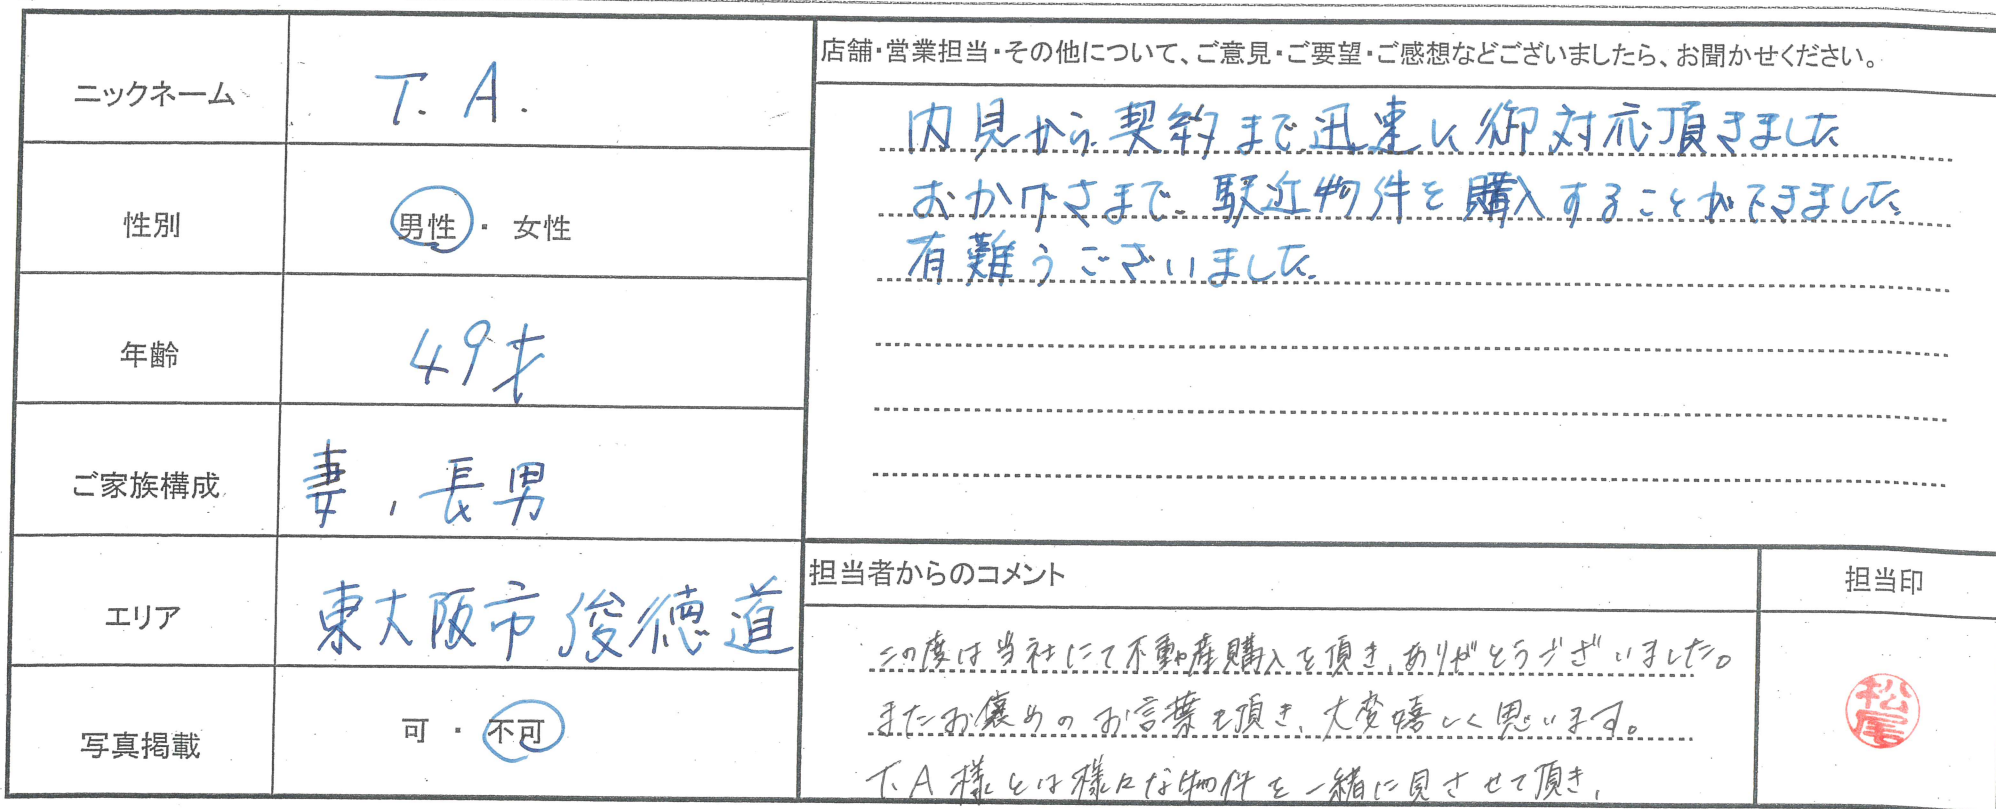 ニックネーム
T. A.
性別
男性 ・ 女性
年齢
49才
ご家族構成
妻、長男
エリア
東大阪市俊徳道
写真掲載
可 ・ 不可
店舗・営業担当・その他について、ご意見・ご要望・ご感想などございましたら、お聞かせください。
内見から契約まで迅速に御対応頂きました
おかげさまで、駅近物件を購入することができました。
有難うございました。
担当者からのコメント
この度は当社にて不動産購入を頂き、ありがとうございました。
またお褒めのお言葉を頂き、大変嬉しく思います。
T.A様とは様々な物件を一緒に見させて頂き、
担当印
松尾